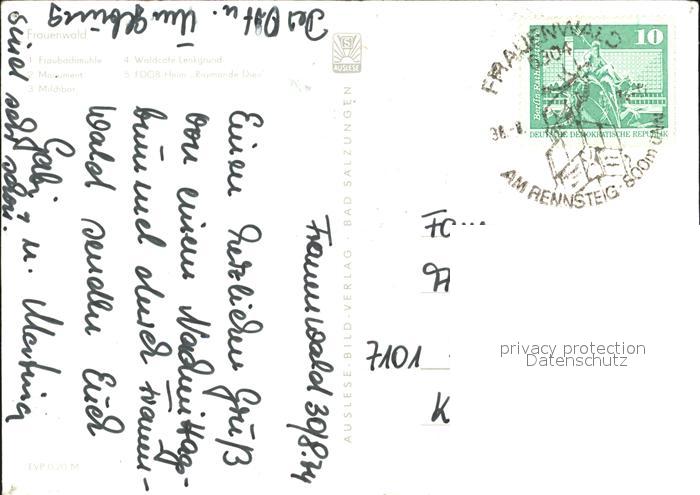 Frauenwald
1 Fraubachmühle
2 Monument
3 Milchbar
4 Waldcafe Lenkgrund
5 FDGB-Heim „Raymonde Dien“
AUSLESE
AUSLESE-BILD-VERLAG · BAD SALZUNGEN
EVP 0,20 M
Frauenwald 30/8.74
Einen herzlichen Gruß
von einem Nachmittag-
bummel durch Frauen-
wald senden Euch
Gabi u. Martina
Der Ort u. Umgebung
sind sehr schön.
FRAUENWALD
6304
AM RENNSTEIG · 800m ü. NN
10
Berlin Rathausstraße
DEUTSCHE DEMOKRATISCHE REPUBLIK
7101
K
privacy protection
Datenschutz